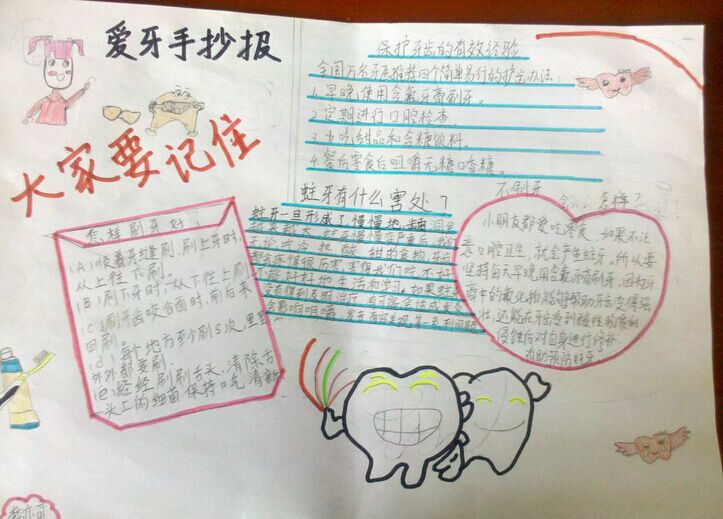 爱牙手抄报
大家要记住
保护牙齿的有效经验
全国万名牙医推荐四个简单易行的护齿办法:
1.早晚使用含氟牙膏刷牙。
2.定期进行口腔检查。
3.少吃甜品和含糖饮料。
4.餐后零食后咀嚼无糖口香糖。
怎样刷牙好?
(A)顺着牙缝刷,刷上牙时,
从上往下刷。
(B)刷下牙时,从下往上刷
(C)刷牙齿咬合面时,刷后来
回刷。
(d)每个地方至少刷5次,里里
外外都要刷。
(e)经经刷刷舌头,清除舌
头上的细菌保持口气清新
蛀牙有什么害处?
蛀牙一旦形成了,慢慢地
无论吃冷 热 酸 甜的食物,牙齿
不能好好地生活和学习。如果蛀牙
没有得到及时治疗
会影响咀嚼
不刷牙
会 怎样?
小朋友都爱吃零食,如果不注
意口腔卫生,就会产生蛀牙。所以要
坚持每天早晚用含氟牙膏刷牙,因为牙
膏中的氟化物能够帮助牙齿变得强
壮,还能在牙齿受到酸性物质的
侵蚀后对自身进行修补,
有助预防蛀牙。